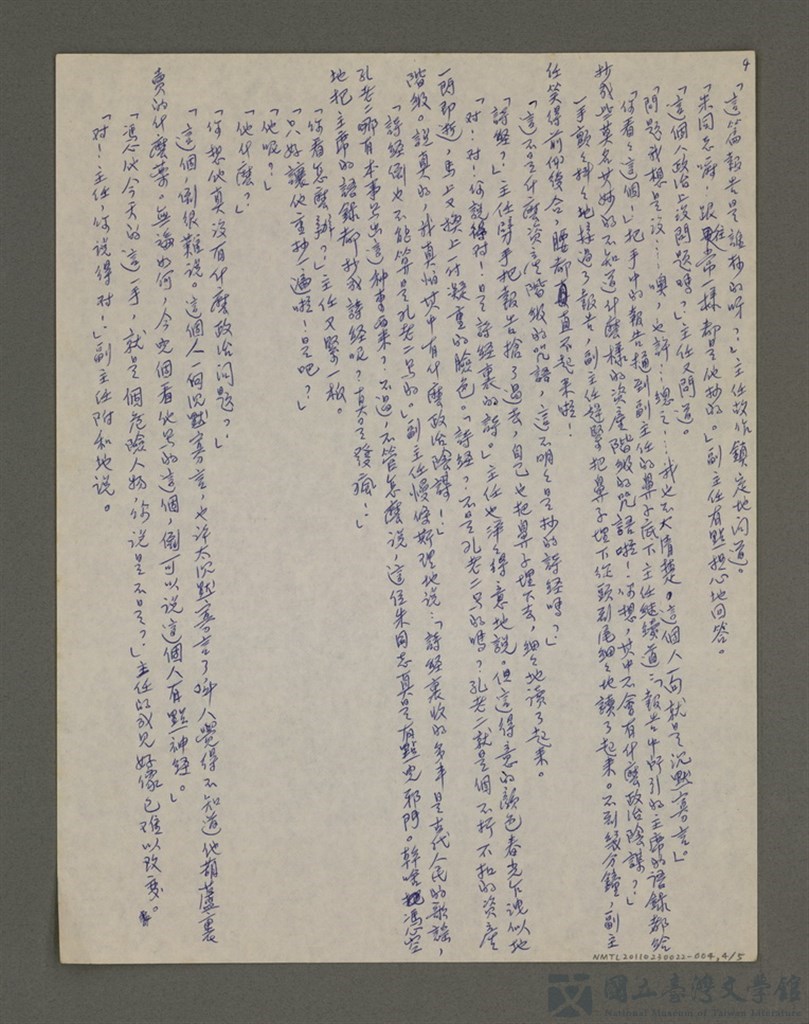 4
「這篇報告是誰抄的呀？」主任故作鎮定地问道。
「朱同志嘛！跟往常一樣都是他抄的。」副主任有點担心地回答。
「這個人政治上没問題嗎？」主任又問道。
「問題我想是没……噢，也許……總之……我也不大清楚，這個人一向就是沉默寡言。」
「你看看這個！」把手中的報告捅到副主任的鼻子底下主任继续道：「報告中所引的主席的語録都給
抄成些莫名其妙的不知道什麼樣的資產階级的咒語啦！你想，其中不會有什麼政治陰謀？」
手顫抖抖地接過了報告，副主任趕緊把鼻子埋下從頭到尾細細地讀了起來。不到幾分鐘，副主
任笑得前仰後合，腰都直不起來啦！
「這不是什麼資產階级的咒語，這不明明是抄的詩经嗎？」
「詩经？」主任劈手把報告搶了過去，自己也把鼻子埋下去，細細地讀了起來。
「对！对！你說得对！是詩经裏的詩。」主任也洋洋得意地說。但這得意的顏色春光乍洩似地
一閃即逝，馬上又換上一付凝重的臉色。「詩经？不是孔老二写的嗎？孔老二就是個不折不扣的資產
階级。説真的，我真怕其中有什麼政治陰謀！」
「詩经倒也不能算是孔老二写的。」副主任慢條斯理地说：「詩经裏收的多半是古代人民的歌謠，
孔老二哪有本事写出這种東西來？不過，不管怎麼说，這位朱同志真是有點兒邪門。幹啥憑空
地把主席的語錄都抄成詩经呢？真是發瘋！」
「你看怎麼辦？」主任又緊一板。
「只好讓他重抄一遍啦！是吧？」
「他呢？」
「他什麼？」
「你想他真没有什麼政治问题？」
「這個，倒很難说。這個人一向沉默寡言，也许太沉默寡言了叫人覺得不知道他葫蘆裏
賣的什麼藥。無論如何，今兒個看他写的這個，倒可以说這個人有點神经。」
「憑他今天的這一手，就是個危險人物，你说是不是？」主任的成見好像已难以改变。
「对！主任，你说得对！」副主任附和地说。
NMTL20110230022-004, 4/5
國立臺灣文學館
National Museum of Taiwan Literature